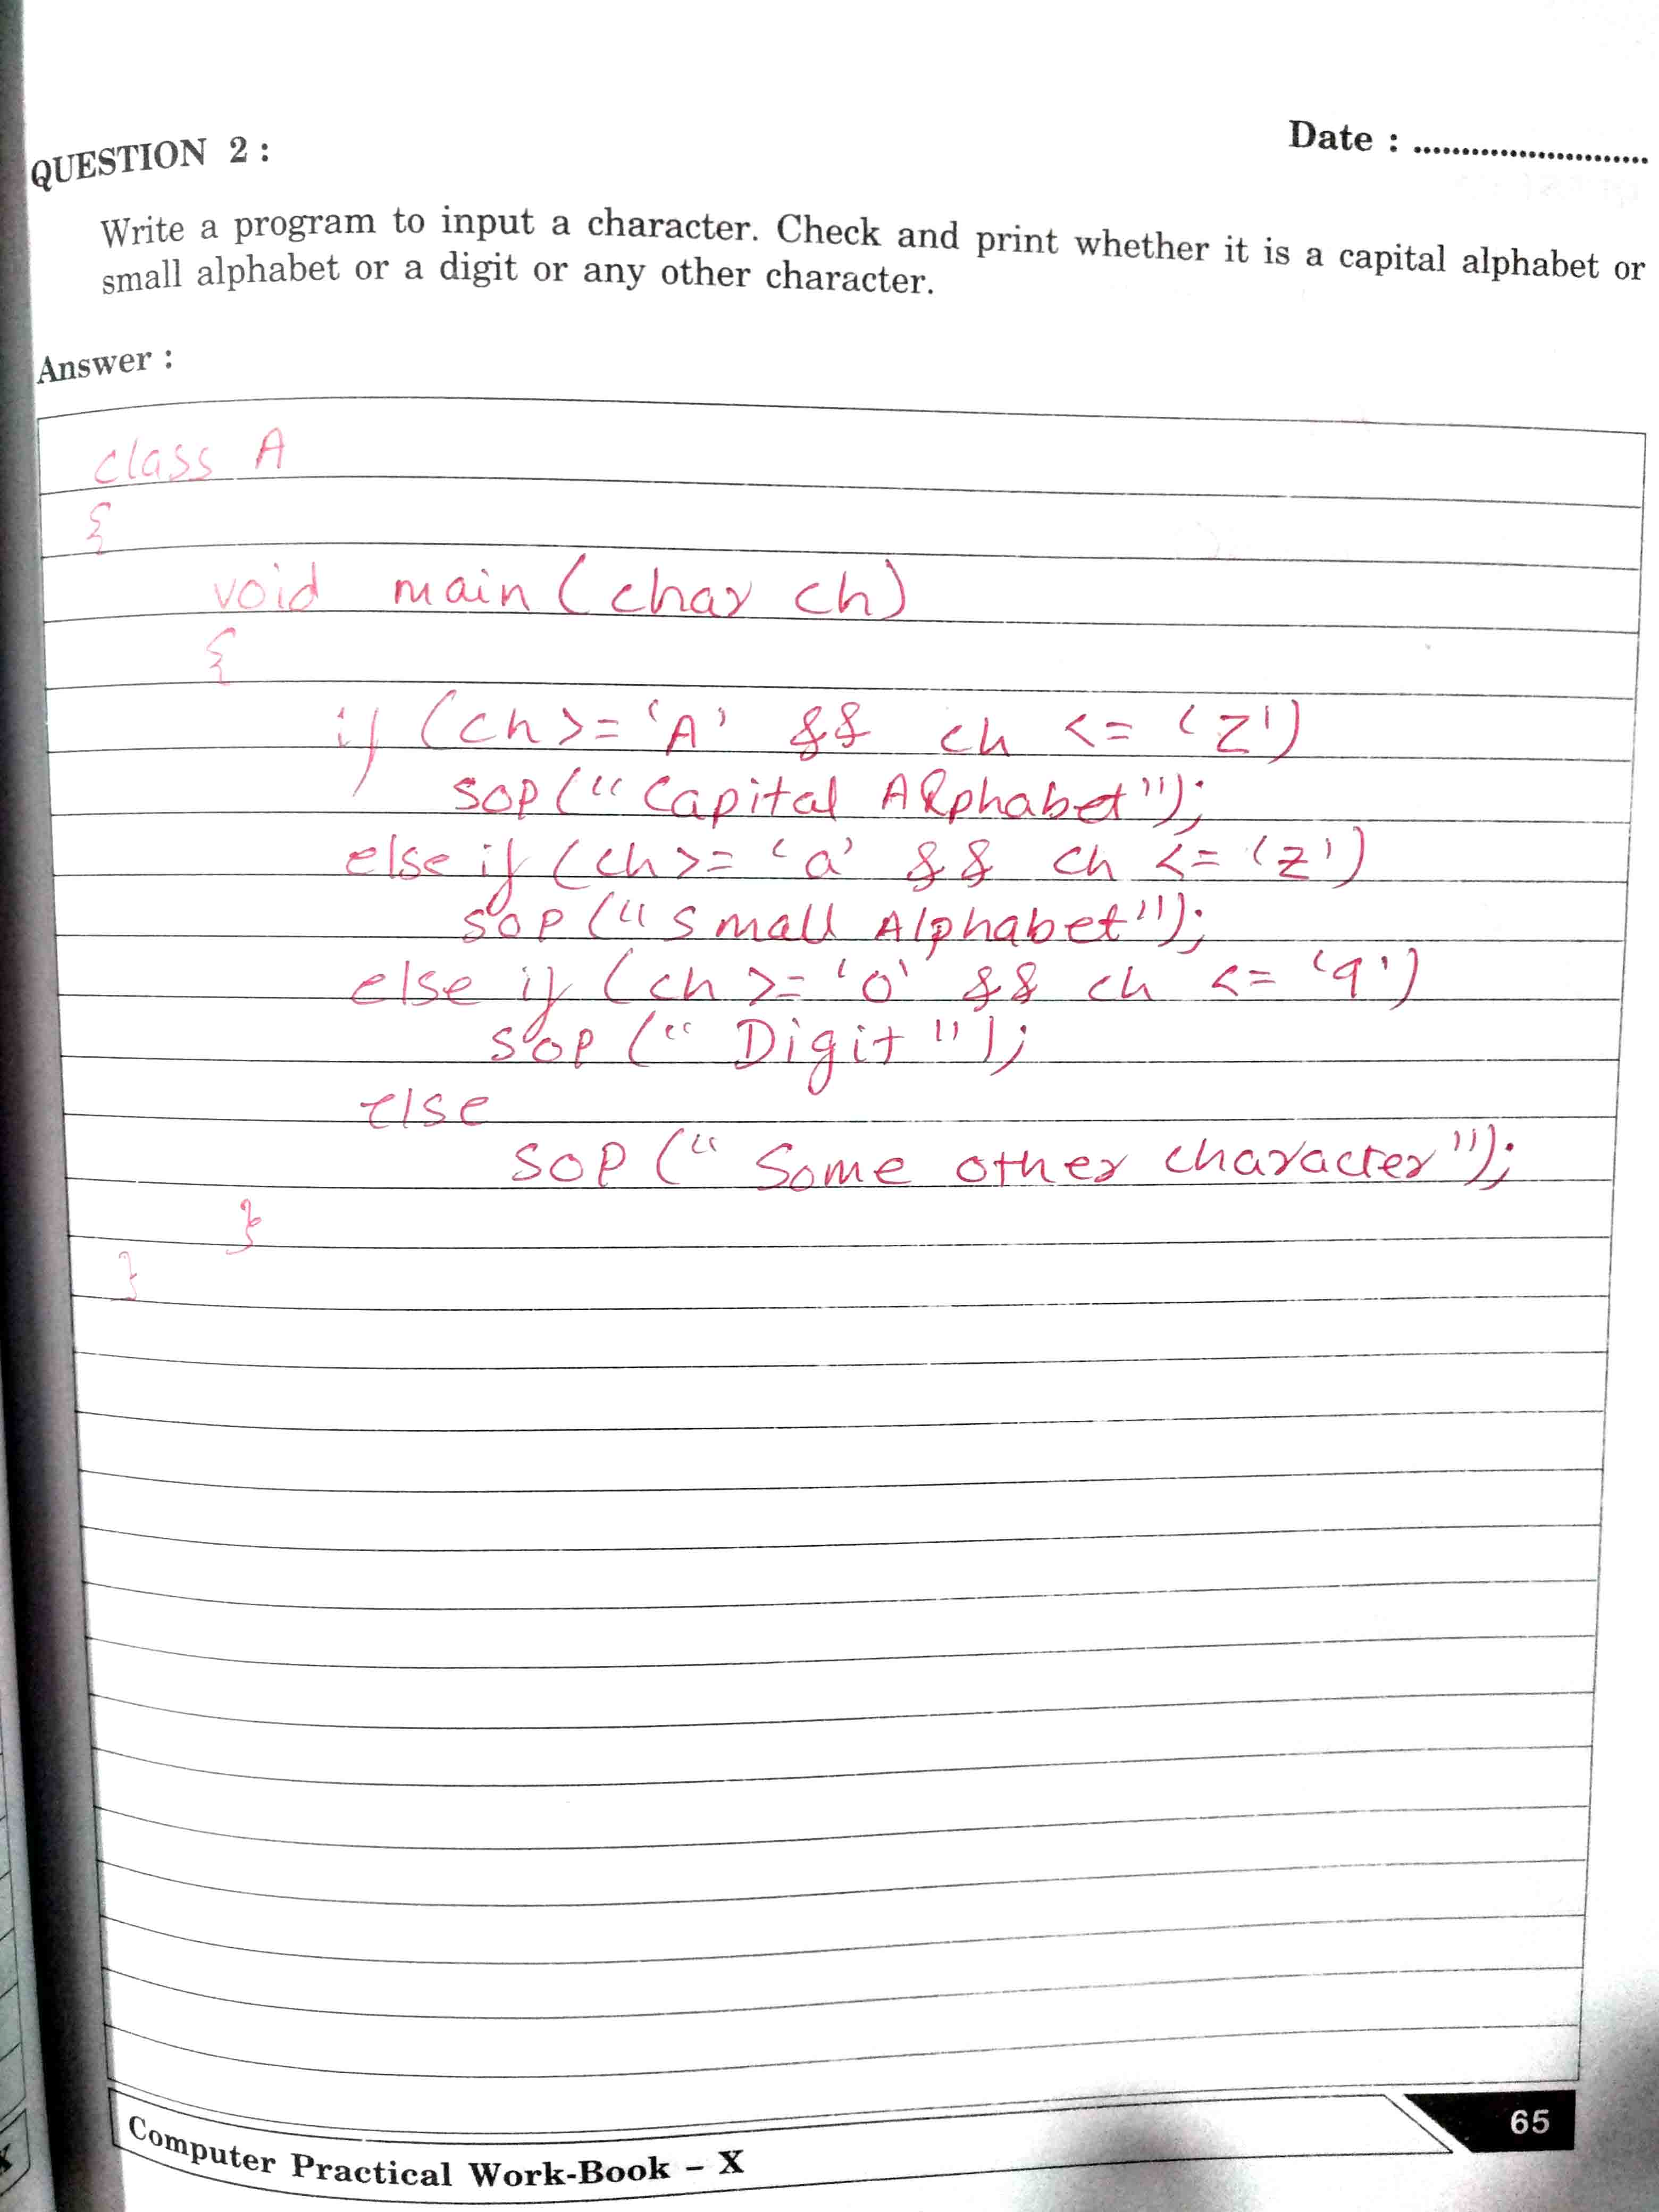 Date : ..........................
QUESTION 2 :
Write a program to input a character. Check and print whether it is a capital alphabet or
small alphabet or a digit or any other character.
Answer :
class A
{
void main ( char ch )
{
if ( ch >= 'A' && ch <= 'Z' )
sop ( " Capital Alphabet " ) ;
else if ( ch >= 'a' && ch <= 'z' )
sop ( " Small Alphabet " ) ;
else if ( ch >= '0' && ch <= '9' )
sop ( " Digit " ) ;
else
sop ( " Some other character " ) ;
}
}
Computer Practical Work-Book – X
65